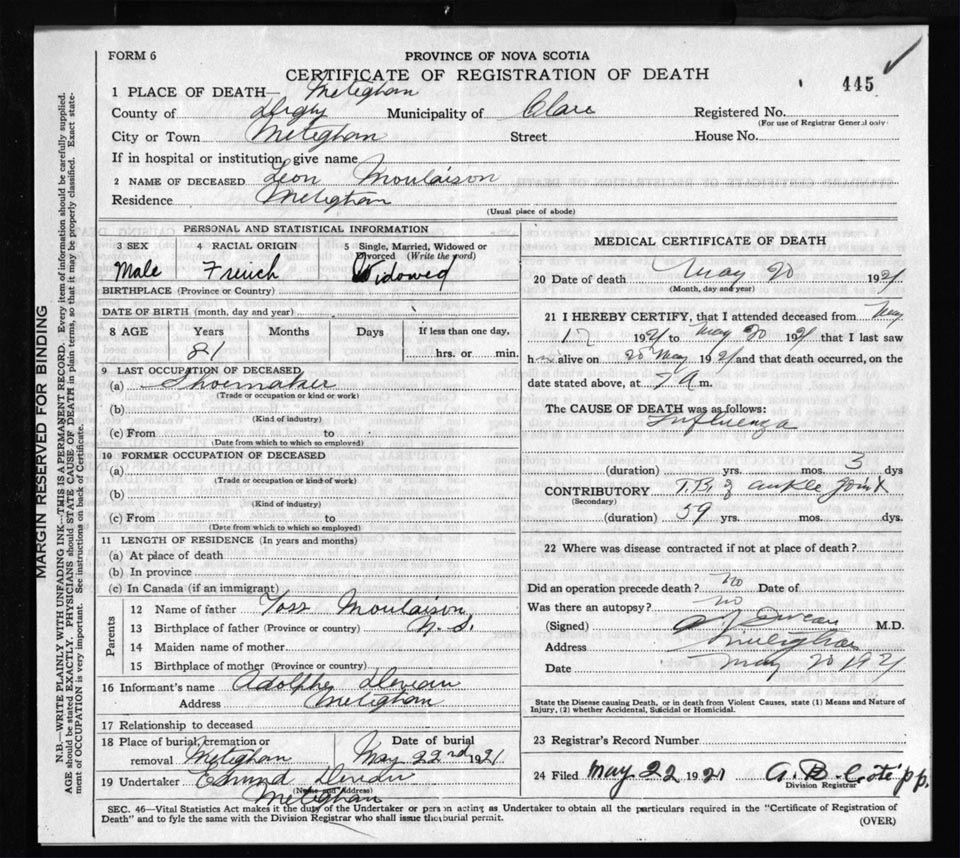 FORM 6
PROVINCE OF NOVA SCOTIA
CERTIFICATE OF REGISTRATION OF DEATH
445
1 PLACE OF DEATH— Meteghan
County of Digby Municipality of Clare Registered No.
(For use of Registrar General only)
City or Town Meteghan Street House No.
If in hospital or institution, give name
2 NAME OF DECEASED Leon Moulaison
Residence Meteghan
(Usual place of abode)
PERSONAL AND STATISTICAL INFORMATION
3 SEX 4 RACIAL ORIGIN 5 Single, Married, Widowed or Divorced (Write the word)
Male French Widowed
BIRTHPLACE (Province or Country)
DATE OF BIRTH (month, day and year)
8 AGE Years Months Days If less than one day,
81 hrs. or min.
9 LAST OCCUPATION OF DECEASED
(a) Shoemaker
(Trade or occupation or kind or work)
(b)
(Kind of industry)
(c) From to
(Date from which to which so employed)
10 FORMER OCCUPATION OF DECEASED
(a)
(Trade or occupation or kind of work)
(b)
(Kind of industry)
(c) From to
(Date from which to which so employed)
11 LENGTH OF RESIDENCE (In years and months)
(a) At place of death
(b) In province
(c) In Canada (if an immigrant)
Parents
12 Name of father Moulaison
13 Birthplace of father (Province or country) N. S.
14 Maiden name of mother
15 Birthplace of mother (Province or country)
16 Informant's name Adolphe
Address Meteghan
17 Relationship to deceased
18 Place of burial, cremation or removal Meteghan
Date of burial May 22nd 1921
19 Undertaker Edmund
(Name and Address)
Meteghan
MEDICAL CERTIFICATE OF DEATH
20 Date of death May 20 1921
(Month, day and year)
21 I HEREBY CERTIFY, that I attended deceased from May
17 1921 to May 20 1921 that I last saw
him alive on 20 May 1921 and that death occurred, on the
date stated above, at 7 a m.
The CAUSE OF DEATH was as follows:
Influenza
(duration) yrs. mos. 3 dys
CONTRIBUTORY T.B. of ankle joint
(Secondary)
(duration) 59 yrs. mos. dys.
22 Where was disease contracted if not at place of death?
Did an operation precede death? no Date of
Was there an autopsy? no
(Signed) M.D.
Address Meteghan
Date May 20 1921
State the Disease causing Death, or in death from Violent Causes, state (1) Means and Nature of
Injury, (2) whether Accidental, Suicidal or Homicidal.
23 Registrar's Record Number
24 Filed May 22 1921 A. B. Coté pp.
Division Registrar
SEC. 46—Vital Statistics Act makes it the duty of the Undertaker or person acting as Undertaker to obtain all the particulars required in the "Certificate of Registration of
Death" and to fyle the same with the Division Registrar who shall issue the burial permit.
(OVER)
MARGIN RESERVED FOR BINDING
N.B.—WRITE PLAINLY WITH UNFADING INK—THIS IS A PERMANENT RECORD. Every item of information should be carefully supplied.
AGE should be stated EXACTLY. PHYSICIANS should STATE CAUSE OF DEATH in plain terms, so that it may be properly classified. Exact state-
ment of OCCUPATION is very important. See instructions on back of Certificate.